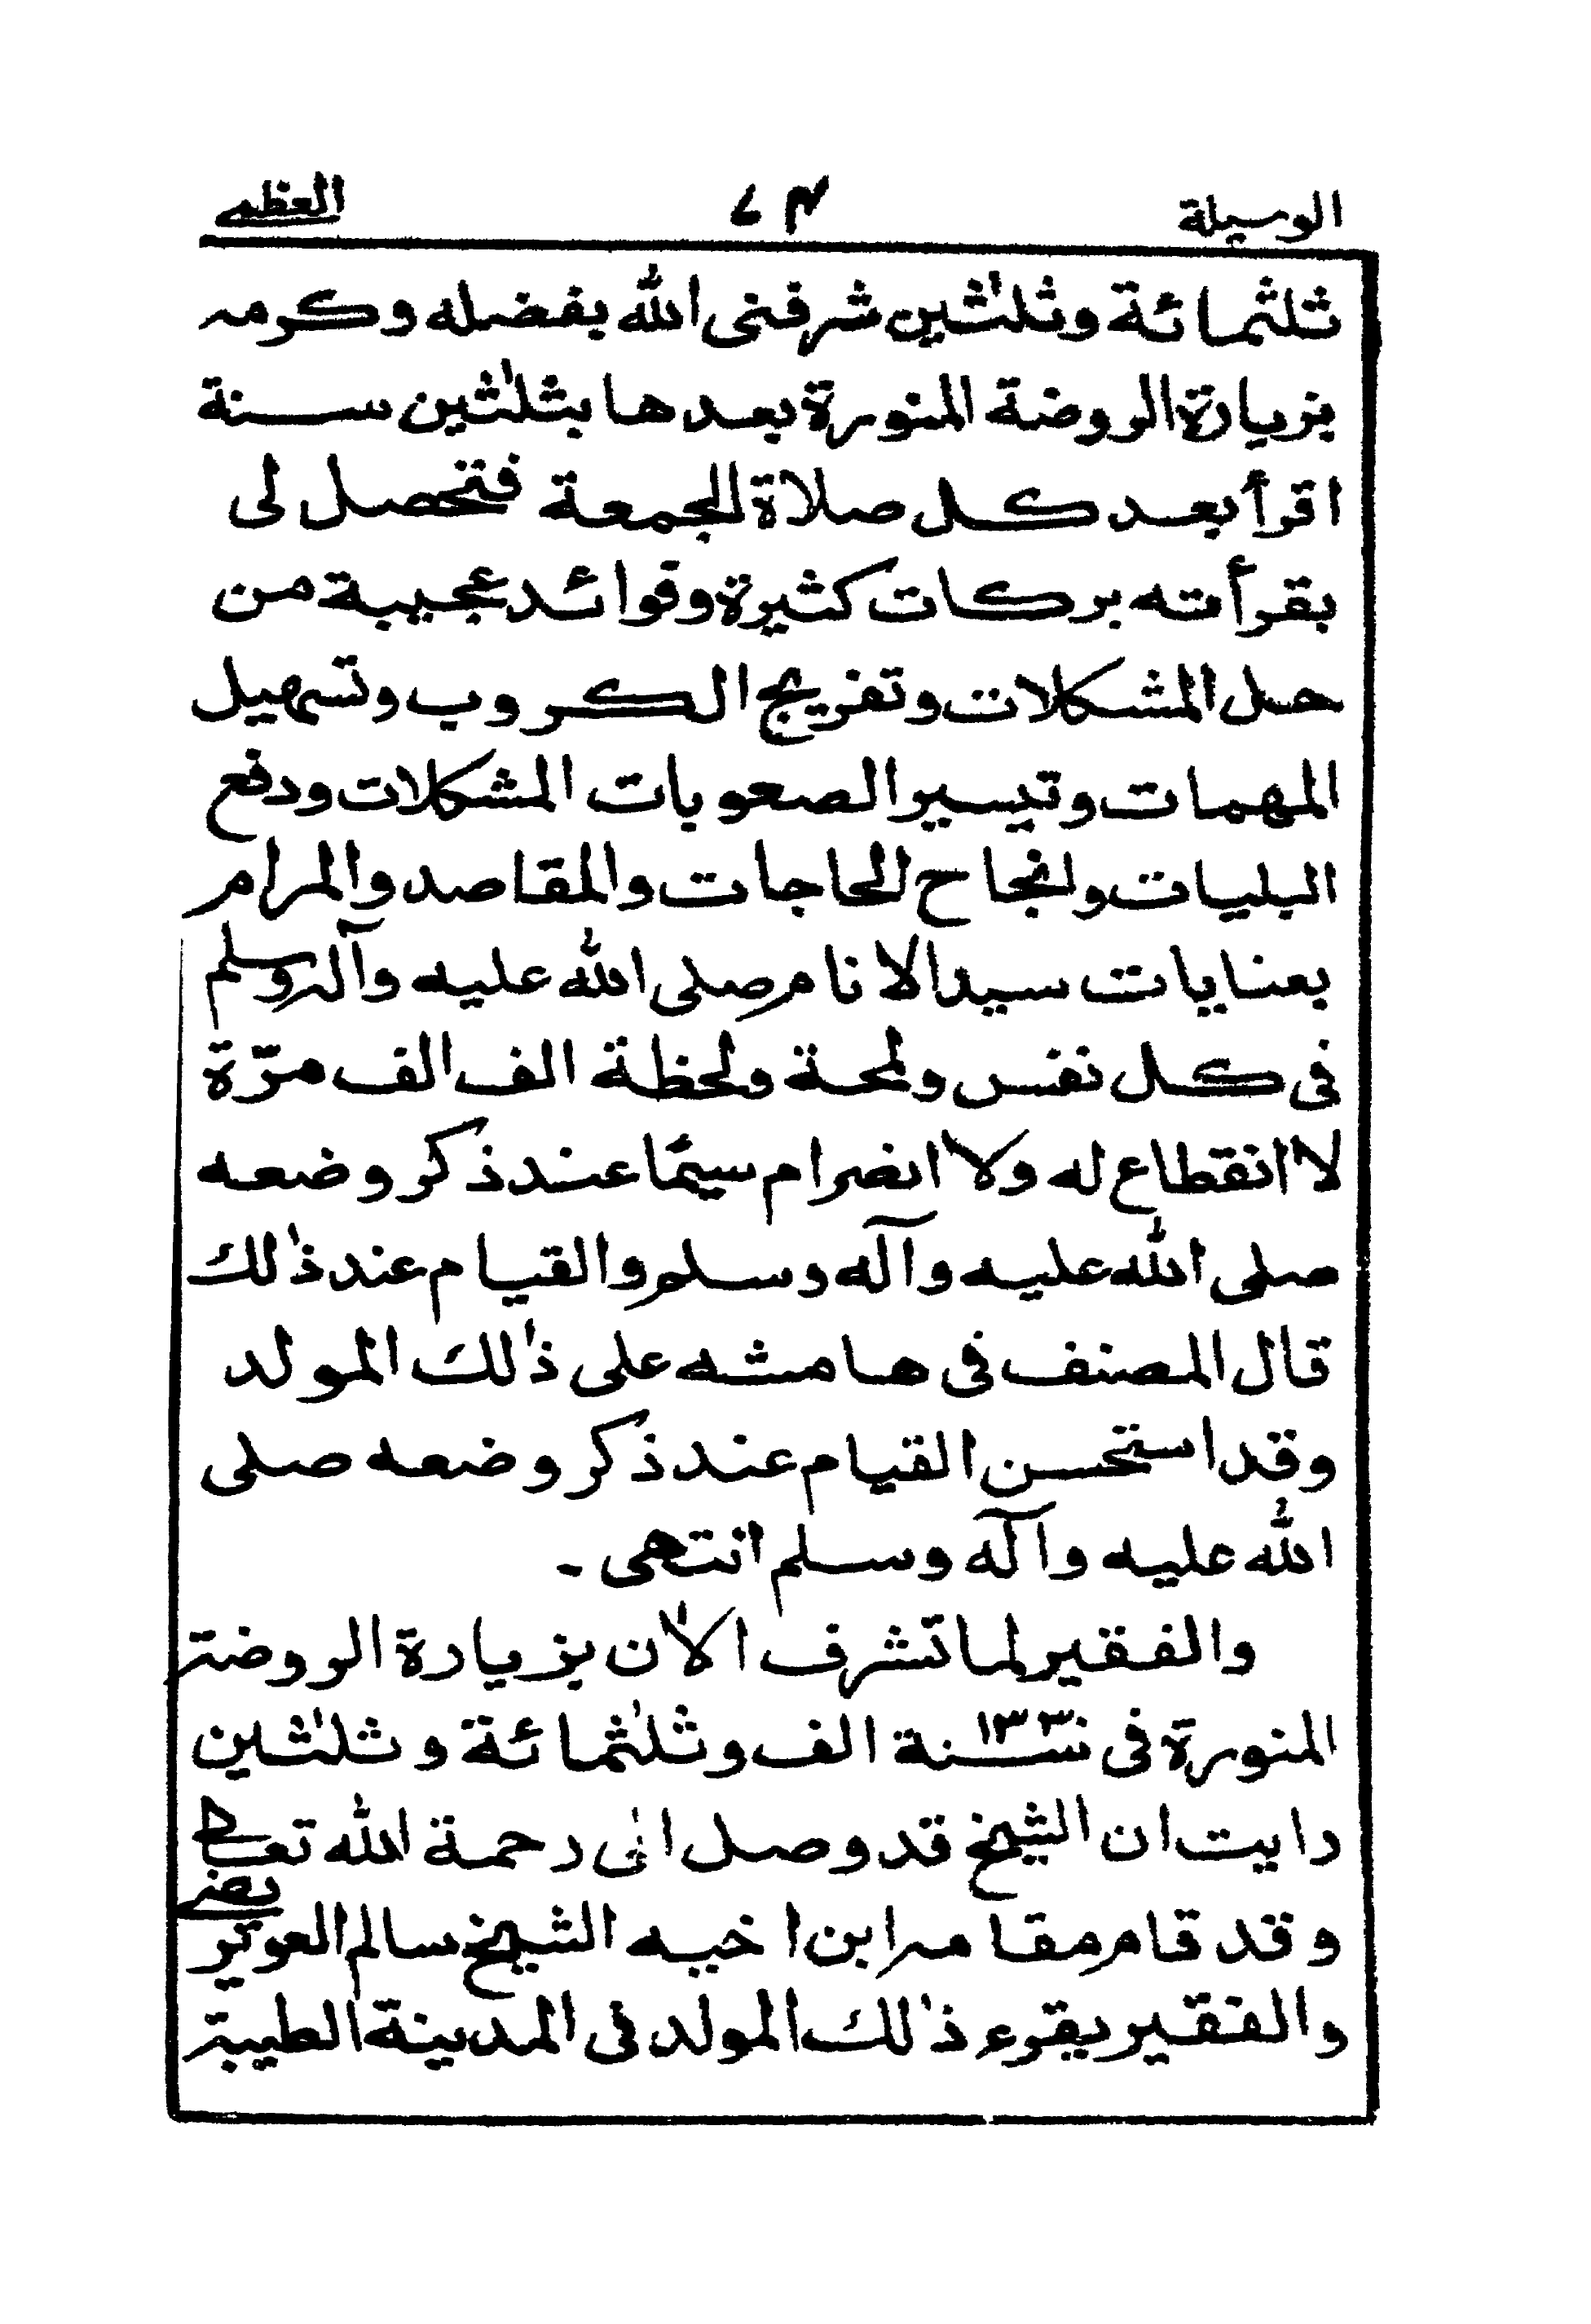 الوسيلة ٧٤ العظمى
ثلثمائة وثلٰثين شرفنى الله بفضله وكرمه
بزيارة الروضة المنورة بعدها بثلٰثين سنة
اقرأ بعد كل صلاة الجمعة فتحصل لى
بقرأته بركات كثيرة وفوائد عجيبة من
حل المشكلات وتفريج الكروب وتسهيل
المهمات وتيسير الصعوبات المشكلات ودفع
البليات وانجاح الحاجات والمقاصد والمرام
بعنايات سيد الانام صلى الله عليه وآله وسلم
فى كل نفس ولمحة ولحظة الف الف مرّة
لا انقطاع له ولا انضرام سيمّا عند ذكر وضعه
صلى الله عليه وآله وسلم والقيام عند ذٰلك
قال المصنف فى هامشه على ذٰلك المولد
وقد استحسن القيام عند ذكر وضعه صلى
الله عليه وآله وسلم انتهى ۔
والفقير لما تشرف الاٰن بزيارة الروضة
المنورة فى سنة ١٣٣٠ الف وثلٰثمائة وثلٰثين
رايت ان الشيخ قد وصل الٰى رحمة الله تعالى
وقد قام مقامه ابن اخيه الشيخ سالم العوتر
والفقير يقرء ذٰلك المولد فى المدينة الطيبة